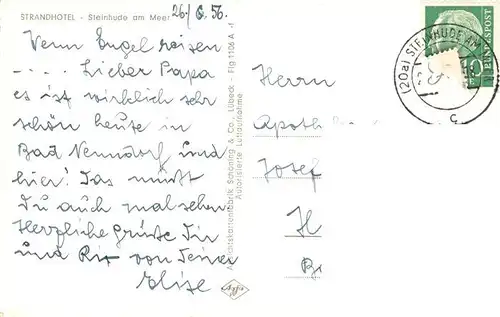 STRANDHOTEL - Steinhude am Meer
26./6.56.
Wenn Engel reisen
. . . . Lieber Papa
es ist wirklich sehr
schön heute in
Bad Nenndorf und
hier! Das müßt
Du auch mal sehen.
Herzliche Grüße Dir
und Ri von Deiner
Elise
Ansichtskartenfabrik Schöning & Co., Lübeck - Flg 1106 A
Autorisierte Luftaufnahme
Herrn
Apoth
Josef
H
(20a) STEINHUDE AM
c